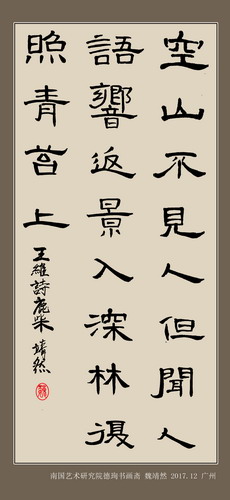 空山不見人但聞人
語響返景入深林復
照青苔上
王維詩鹿柴 靖然
南国艺术研究院德珣书画斋 魏靖然 2017.12 广州